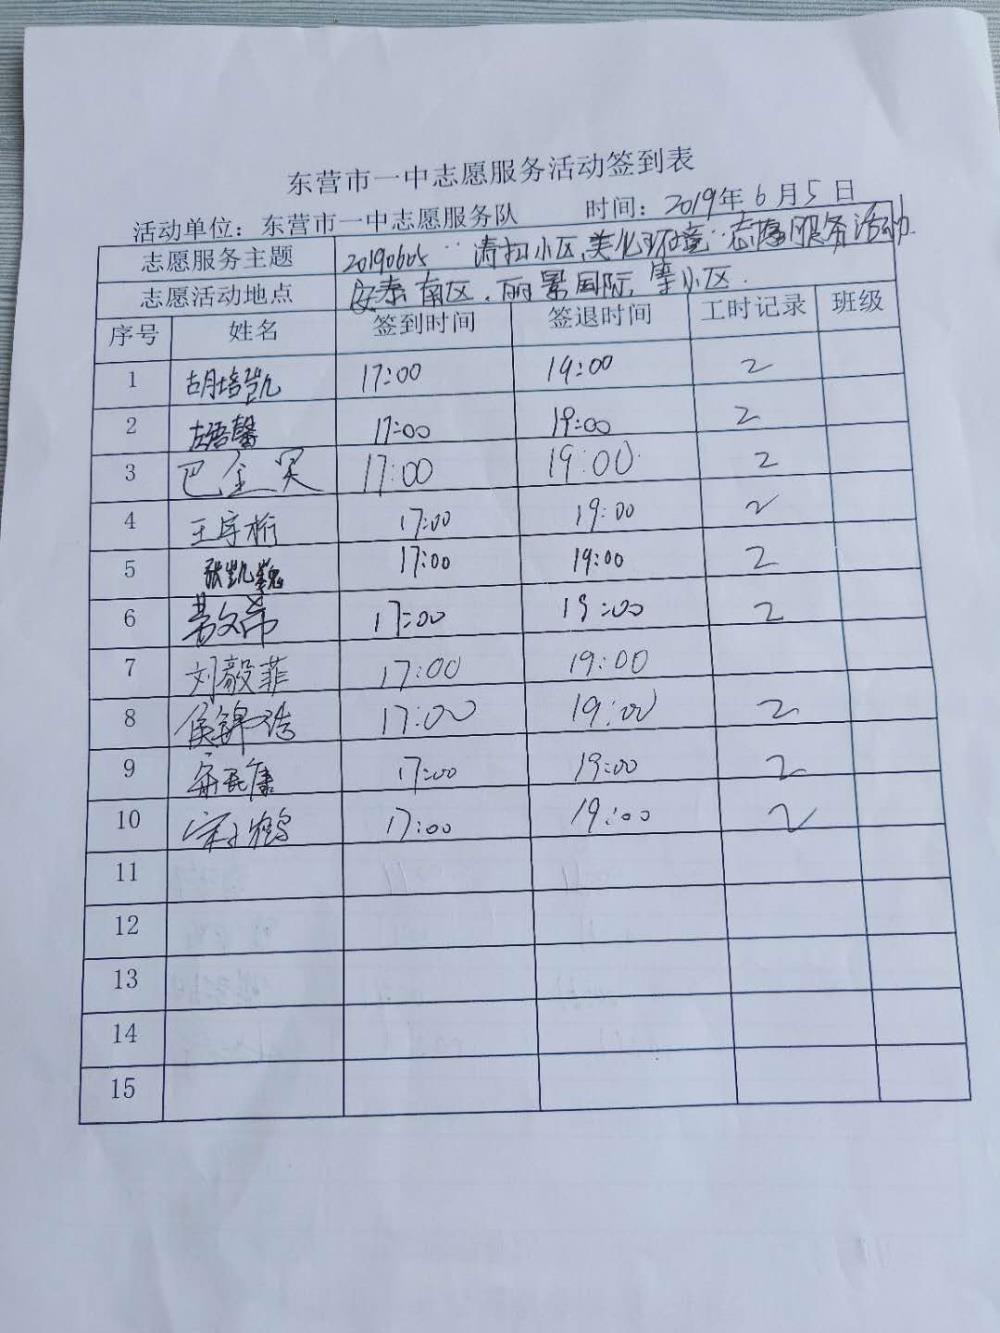 东营市一中志愿服务活动签到表
活动单位：东营市一中志愿服务队 时间：2019年6月5日
志愿服务主题 20190605 “清扫小区,美化环境”志愿服务活动.
志愿活动地点 安泰南区.丽景国际 等小区.
序号 姓名 签到时间 签退时间 工时记录 班级
1 胡培凯 17:00 19:00 2
2 17:00 19:00 2
3 17:00 19:00 2
4 王宇桁 17:00 19:00 2
5 张凯巍 17:00 19:00 2
6 17:00 19:00 2
7 刘毅菲 17:00 19:00
8 侯锦浩 17:00 19:00 2
9 17:00 19:00 2
10 17:00 19:00 2
11
12
13
14
15